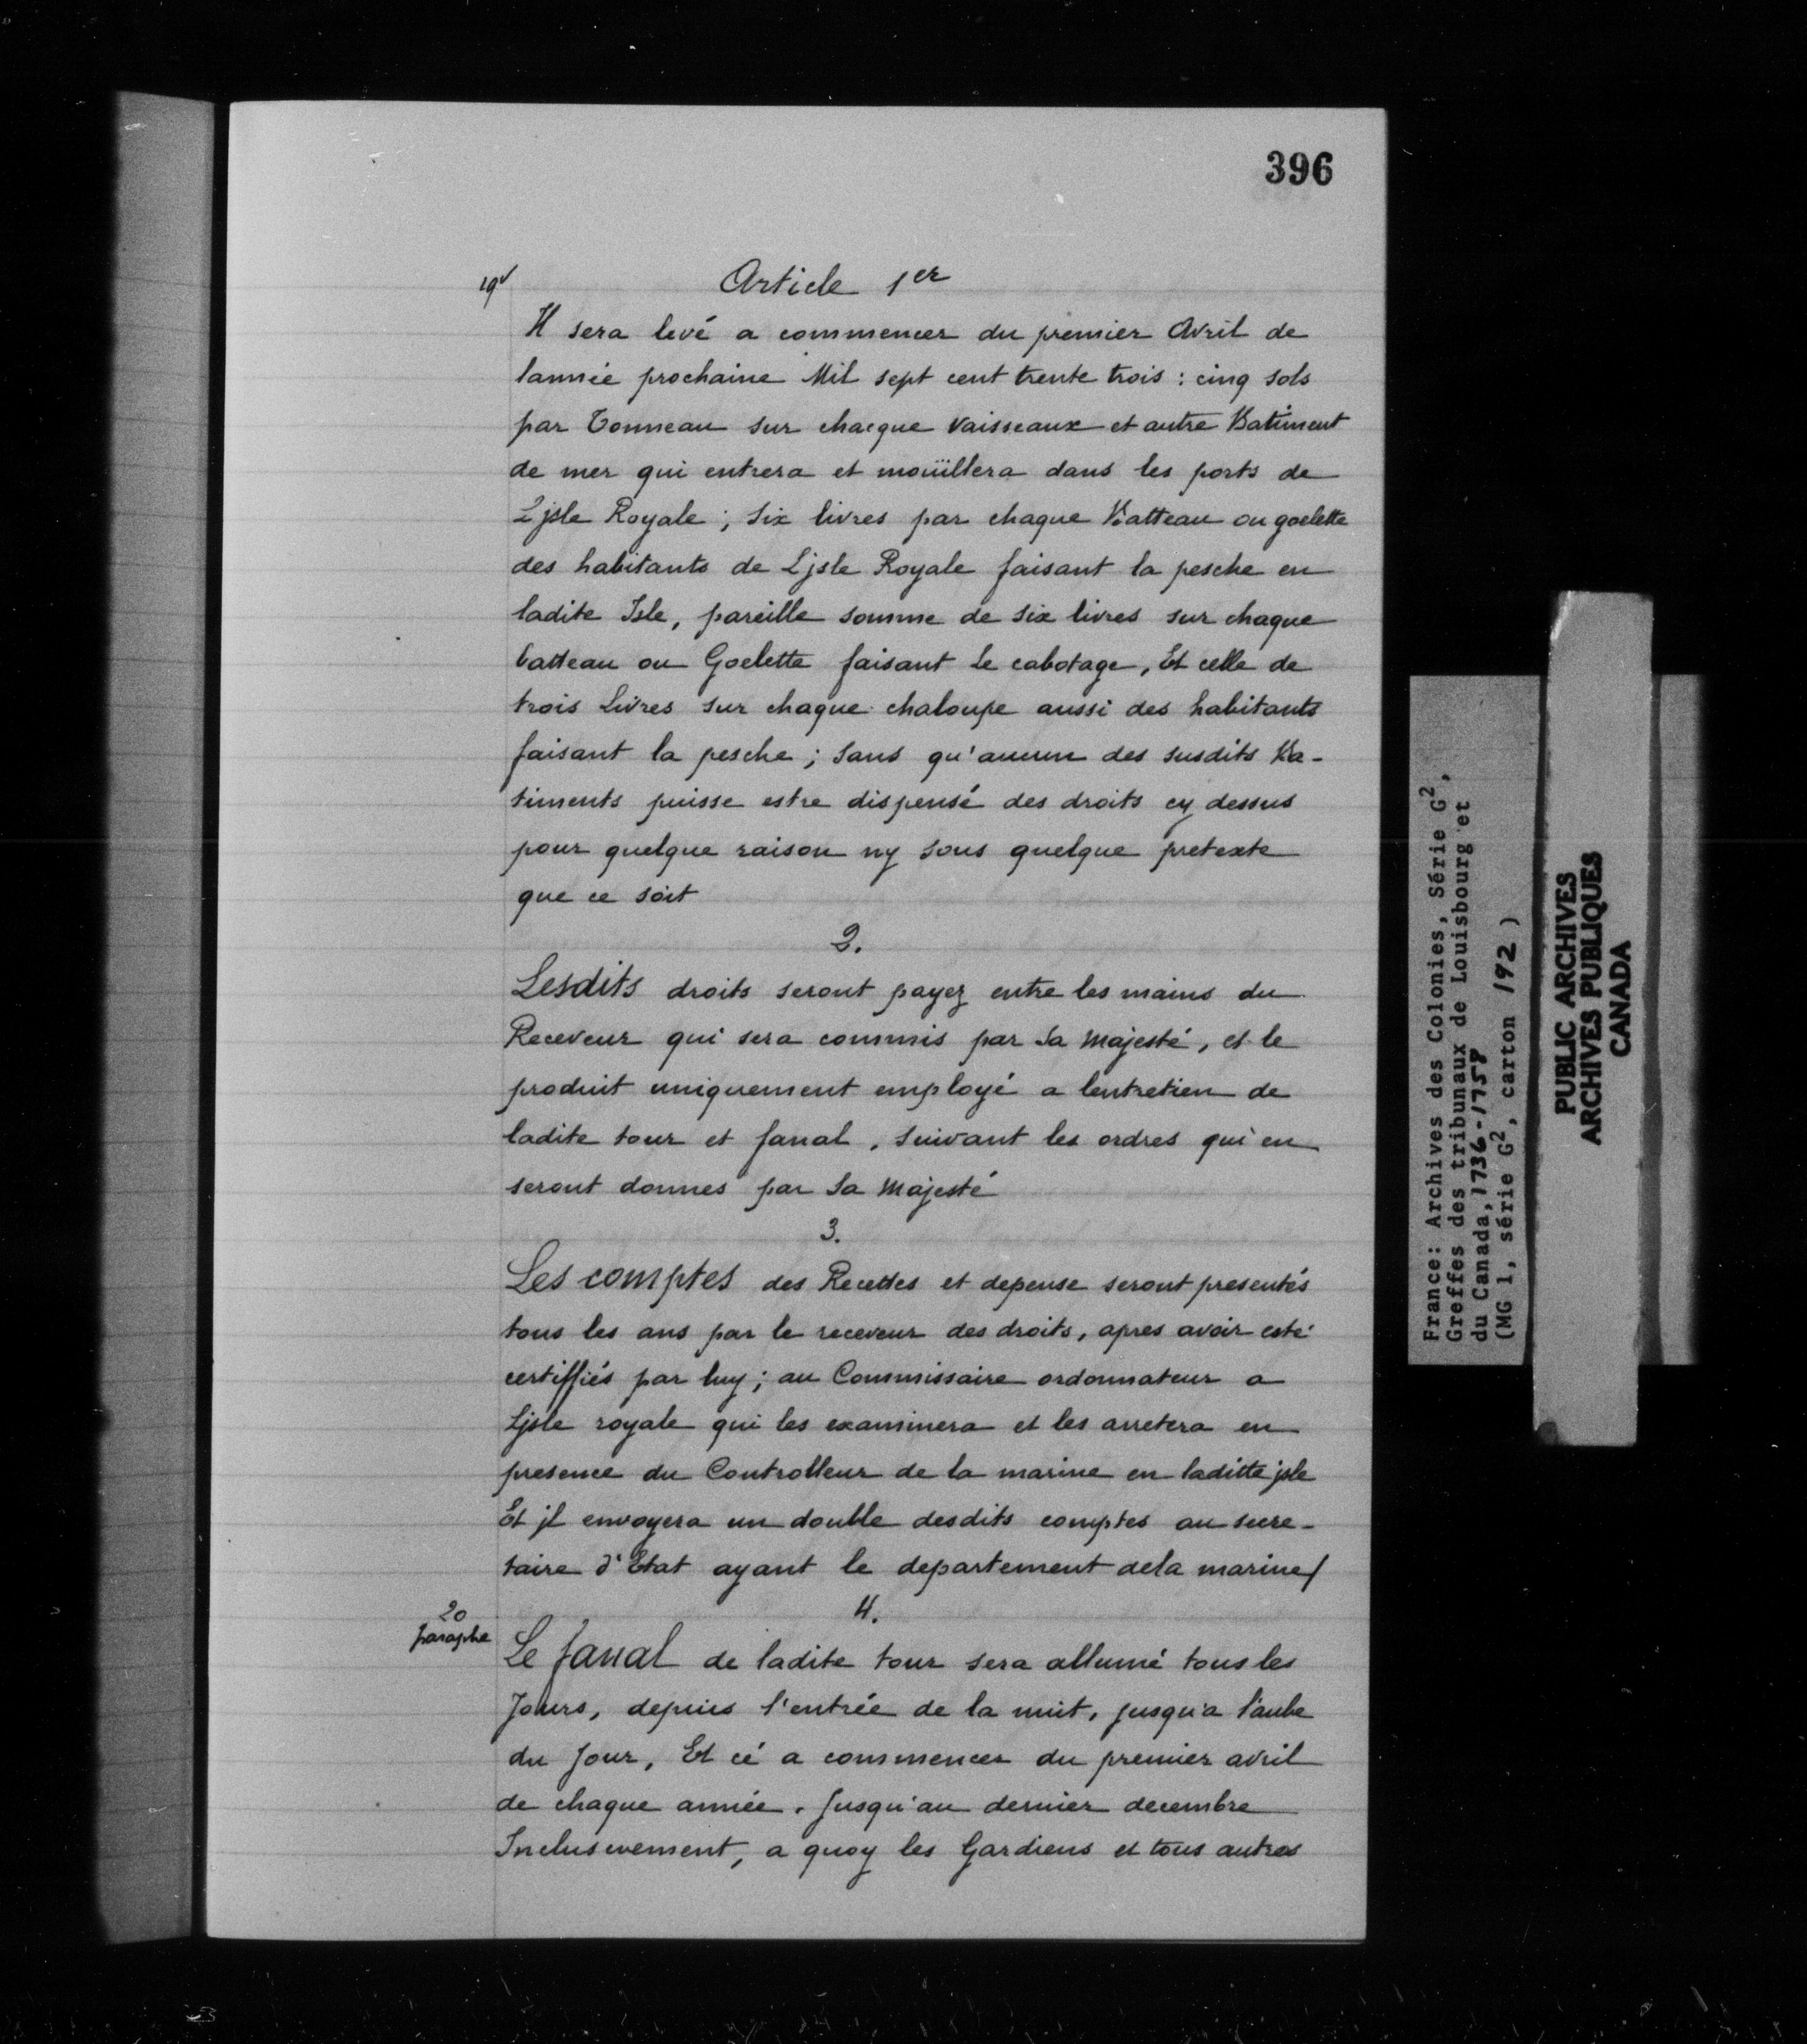 396
19v
Article 1er
Il sera levé a commencer du premier Avril de
lannée prochaine Mil sept cent trente trois : cinq sols
par Tonneau sur chacque vaisseaux et autre Batiment
de mer qui entrera et moüillera dans les ports de
Ljsle Royale ; six livres par chaque Batteau ou goelette
des habitants de Ljsle Royale faisant la pesche en
ladite Isle, pareille somme de six livres sur chaque
batteau ou Goelette faisant le cabotage, Et celle de
trois Livres sur chaque chaloupe aussi des habitants
faisant la pesche ; sans qu'aucun des susdits Ba-
timents puisse estre dispensé des droits cy dessus
pour quelque raison ny sous quelque pretexte
que ce soit
2.
Lesdits droits seront payez entre les mains du
Receveur qui sera commis par Sa Majesté, et le
produit uniquement employé a lentretien de
ladite tour et fanal, suivant les ordres qui en
seront donnes par Sa Majesté
3.
Les comptes des Recettes et depense seront presentés
tous les ans par le receveur des droits, apres avoir esté
certiffiés par luy ; au Commissaire ordonnateur a
Ljsle royale qui les examinera et les arretera en
presence du Controlleur de la marine en laditte jsle
Et jl envoyera un double desdits comptes au secre-
taire d'Etat ayant le departement dela marine/
4.
20
paraphe
Le fanal de ladite tour sera allumé tous les
Jours, depuis l'entrée de la nuit, jusqu'a l'aube
du Jour, Et cé a commencer du premier avril
de chaque année, Jusqu'au dernier decembre
Inclusivement, a quoy les Gardiens et tous autres
France: Archives des Colonies, Série G2,
Greffes des tribunaux de Louisbourg et
du Canada, 1736-1758
(MG 1, série G2, carton 192 )
PUBLIC ARCHIVES
ARCHIVES PUBLIQUES
CANADA